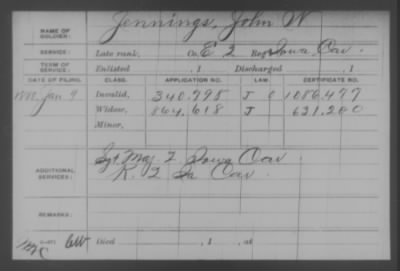 NAME OF SOLDIER: Jennings, John W
SERVICE: Late rank, Co. E 2 Reg't Iowa Cav.
TERM OF SERVICE: Enlisted , 1 Discharged , 1
DATE OF FILING. CLASS. APPLICATION NO. LAW. CERTIFICATE NO.
Jan 9 Invalid, 340.798 J C 1086.477
Widow, 864.618 J 621.200
Minor,
ADDITIONAL SERVICES: Sgt. Maj 2 Iowa Cav
K. 2 Ia Cav.
REMARKS:
Died , 1 , at